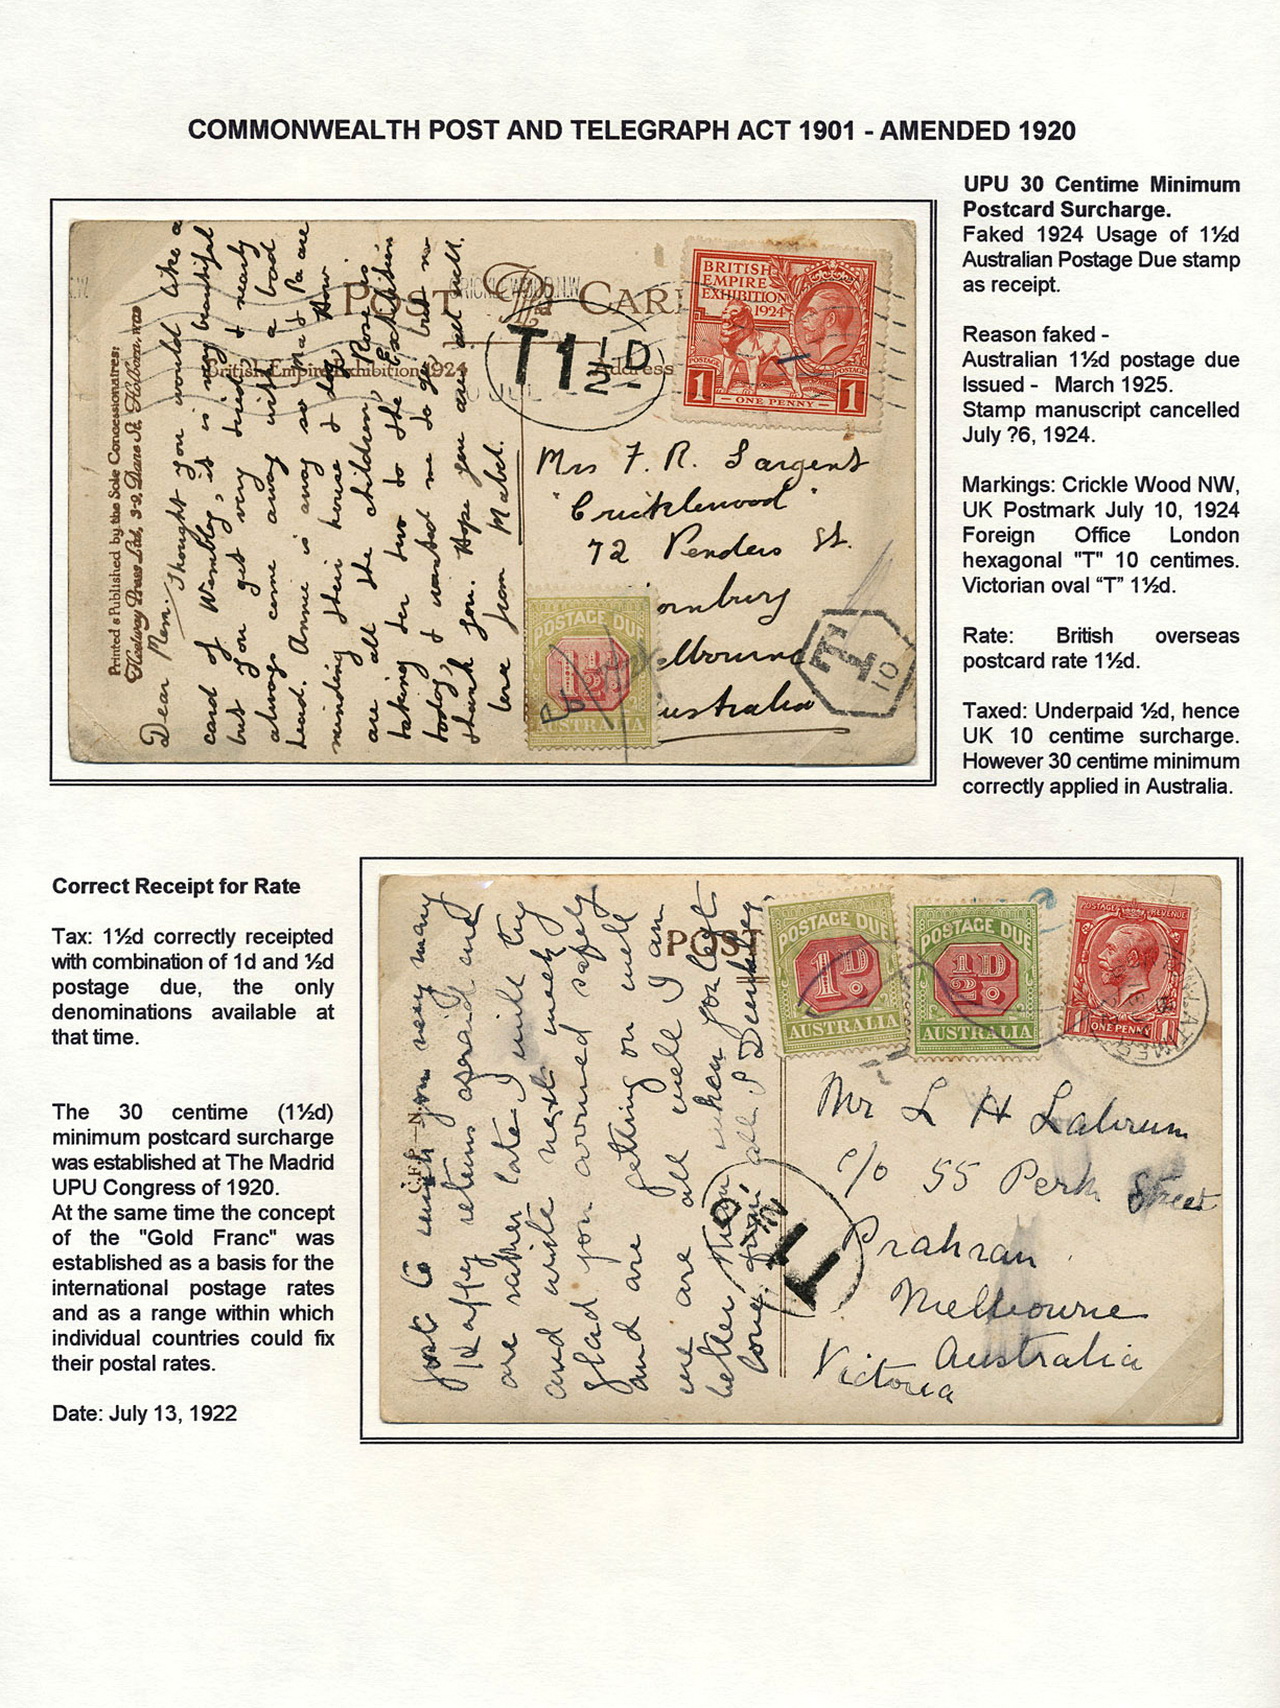 COMMONWEALTH POST AND TELEGRAPH ACT 1901 - AMENDED 1920
UPU 30 Centime Minimum
Postcard Surcharge.
Faked 1924 Usage of 1½d
Australian Postage Due stamp
as receipt.
Reason faked -
Australian 1½d postage due
Issued - March 1925.
Stamp manuscript cancelled
July ?6, 1924.
Markings: Crickle Wood NW,
UK Postmark July 10, 1924
Foreign Office London
hexagonal "T" 10 centimes.
Victorian oval “T” 1½d.
Rate: British overseas
postcard rate 1½d.
Taxed: Underpaid ½d, hence
UK 10 centime surcharge.
However 30 centime minimum
correctly applied in Australia.
Printed & Published by the Sole Concessionaires:
Fleetway Press Ltd, 3-9, Dane St, Holborn, WC1
Dear Mem. Thought you would like a
card of Wembley, it is very beautiful
but you get very tired & nearly
always come away with a bad
head. Annie is away so Ma & Pa are
minding their house & dog. How
are all the children, Rose is
taking her two to the Exhibition
today, & wanted me to go but no
thank you. Hope you are all well.
love from Mabel.
POST CARD
British Empire Exhibition 1924
Address
CRICKLEWOOD.N.W
T1½D
BRITISH
EMPIRE
EXHIBITION
1924
POSTAGE
POSTAGE
1 1
ONE PENNY
Mrs F. R. Sargent
"Cricklewood"
72 Penders St.
ornbury
elbourne
ustralia
POSTAGE DUE
1½D
AUSTRALIA
T
10
Correct Receipt for Rate
Tax: 1½d correctly receipted
with combination of 1d and ½d
postage due, the only
denominations available at
that time.
The 30 centime (1½d)
minimum postcard surcharge
was established at The Madrid
UPU Congress of 1920.
At the same time the concept
of the "Gold Franc" was
established as a basis for the
international postage rates
and as a range within which
individual countries could fix
their postal rates.
Date: July 13, 1922
just to wish you very many
Happy returns afraid
are rather late I will try
and write next
glad you arrived safely
and are getting on well
we are all well I am
better than when you left
love from all
POST
POSTAGE DUE
1D
AUSTRALIA
POSTAGE DUE
½D
AUSTRALIA
POSTAGE REVENUE
1 ONE PENNY 1
T
Mr L H
c/o 55 Perth Street
Prahran
Melbourne
Australia
Victoria